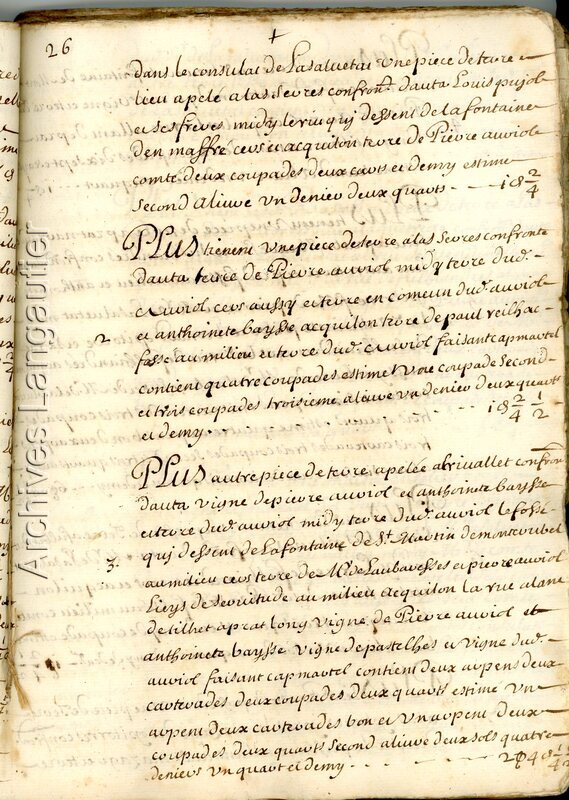 26
dans le consulat de Lasalvetat une piece de terre
lieu apelé a las serres confront. dauta Louis pujol
et ses freres midy le riu qui dessent de la fontaine
den maffré cers et acquilon terre de Pierre auriol
comté deux coupades deux carts et demy estimé
second alivré un denier deux quarts - - - 1 d 2/4
PLUS tienent une piece de terre a las serres confronte
dauta terre de Pierre auriol midy terre dud.
auriol cers aussy et terre en comeun dud. auriol
2
et anthoinete baysse acquilon terre de paul veilhac
fosse au milieu et terre dud. auriol faisant capmartel
contient quatre coupades estimé une coupade second
et trois coupades troisieme alivré un denier deux quarts
et demy - - - 1 d 2/4 1/2
PLUS autre piece de terre apelée al rivallet confron
dauta vigne de pierre auriol et anthoinete baysse
et terre dud. auriol midy terre dud. auriol le fosse
qui dessent de La fontaine de St. Martin de montcoubel
3.
au milieu cers terre de Mr. de Laubaresses et pierre auriol
Lieys de servitude au milieu acquilon la rue alant
de tilhet a prat lony vigne de Pierre auriol et
anthoinete baysse vigne de pastelhes et vigne dud.
auriol faisant capmartel contient deux arpens deux
carterades deux coupades deux quarts estimé un
arpent deux carterades bon et un arpent deux
coupades deux quarts second alivré deux sols quatre
deniers un quart et demy - - - 2 s 4 d 1/4 1/2
Archives Langautier